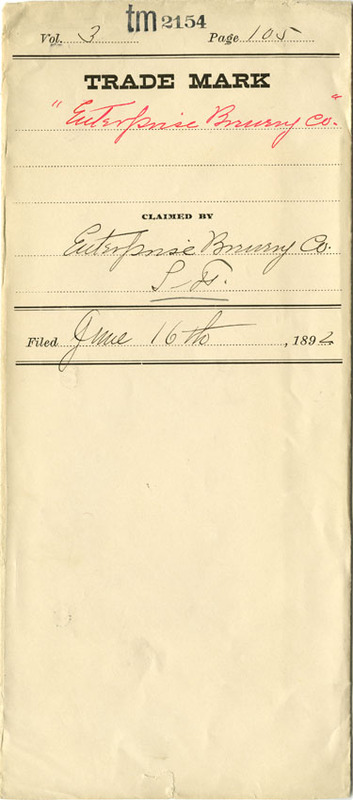 tm 2154
Vol. 3 Page 105
TRADE MARK
"Enterprise Brewery Co."
CLAIMED BY
Enterprise Brewery Co.
S-F.
Filed June 16th, 1892